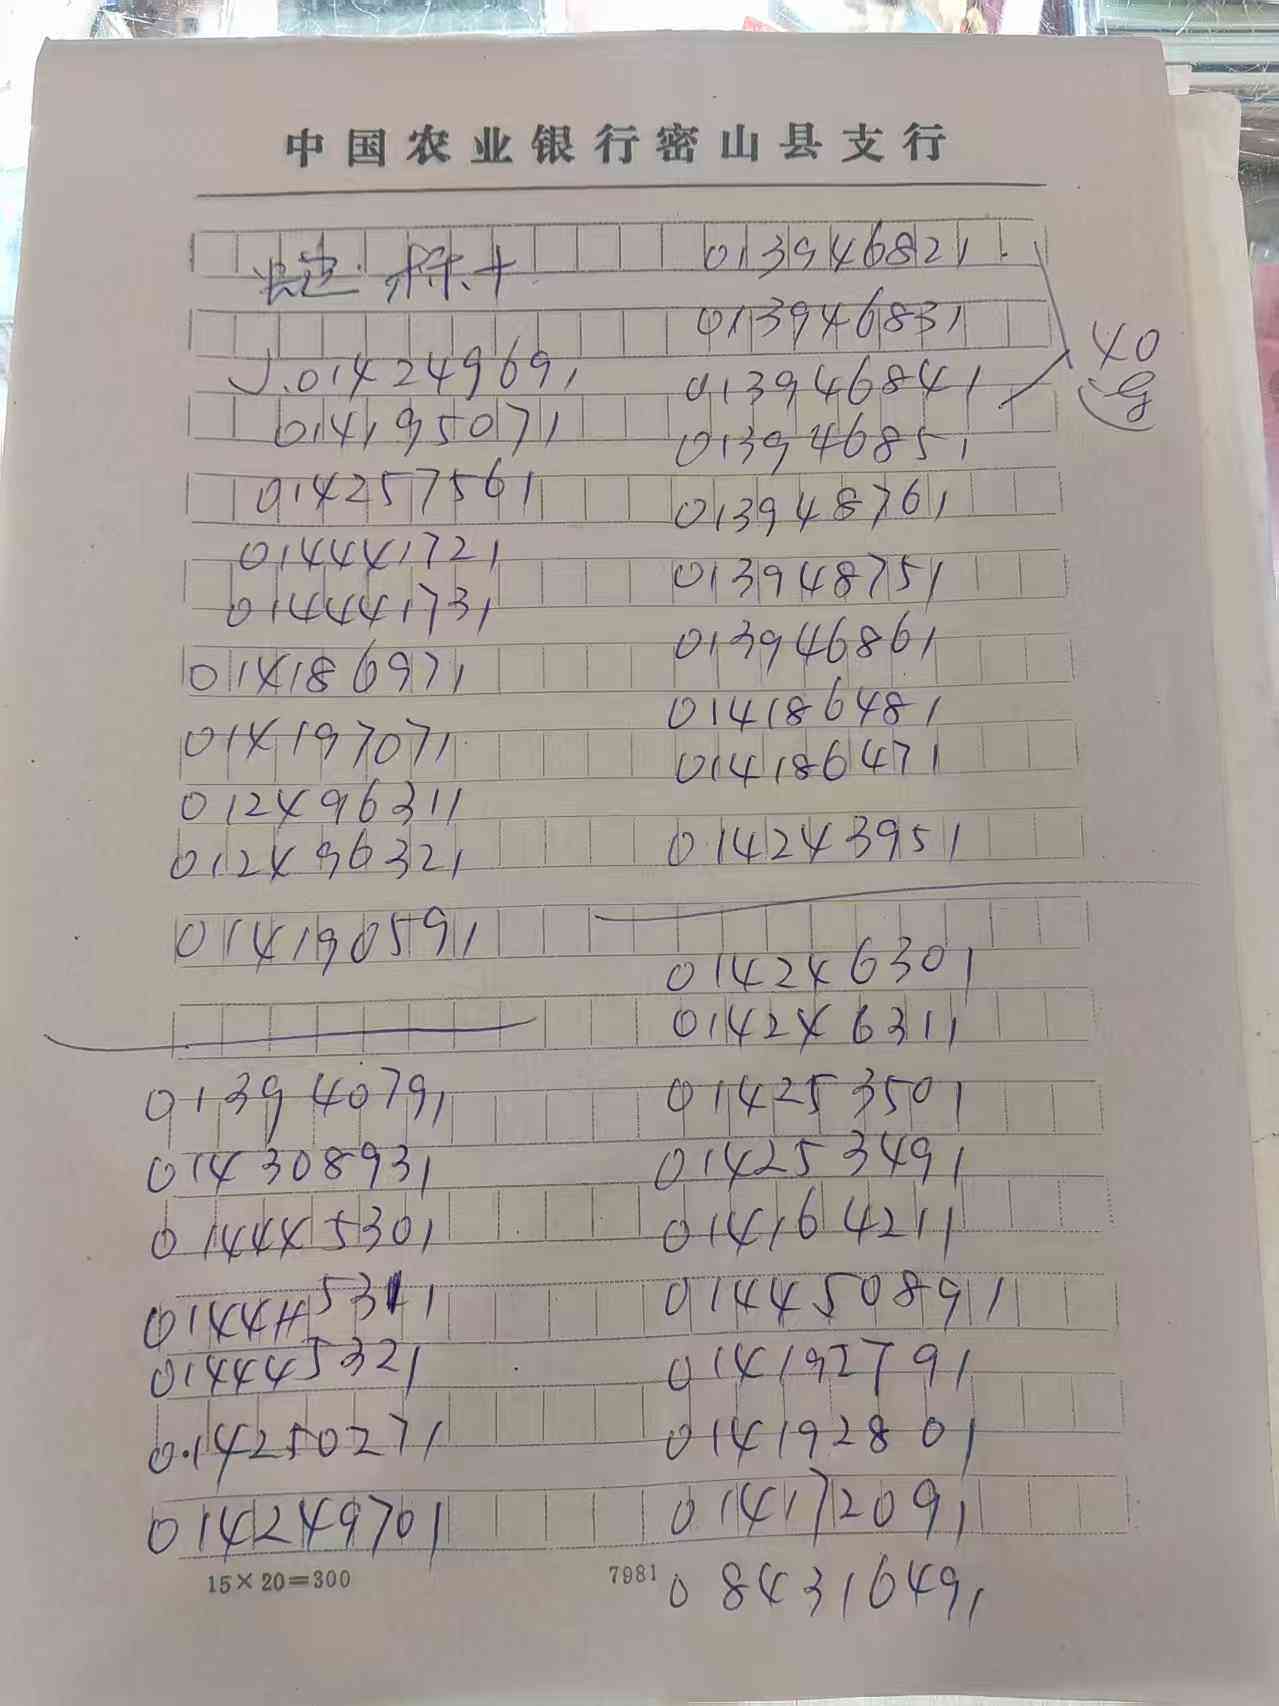 中国农业银行密山县支行
014249691
014195071
014257561
014441721
014441731
014186971
014197071
012496311
012496321
014190591
013940791
014308931
014445301
014445311
014445321
014250271
014249701
15×20=300
013946821
013946831
013946841
40
013946851
013948761
013948751
013946861
014186481
014186471
014243951
014246301
014246311
014253501
014253491
014164211
014450891
014192791
014192801
014172091
084316491
7981